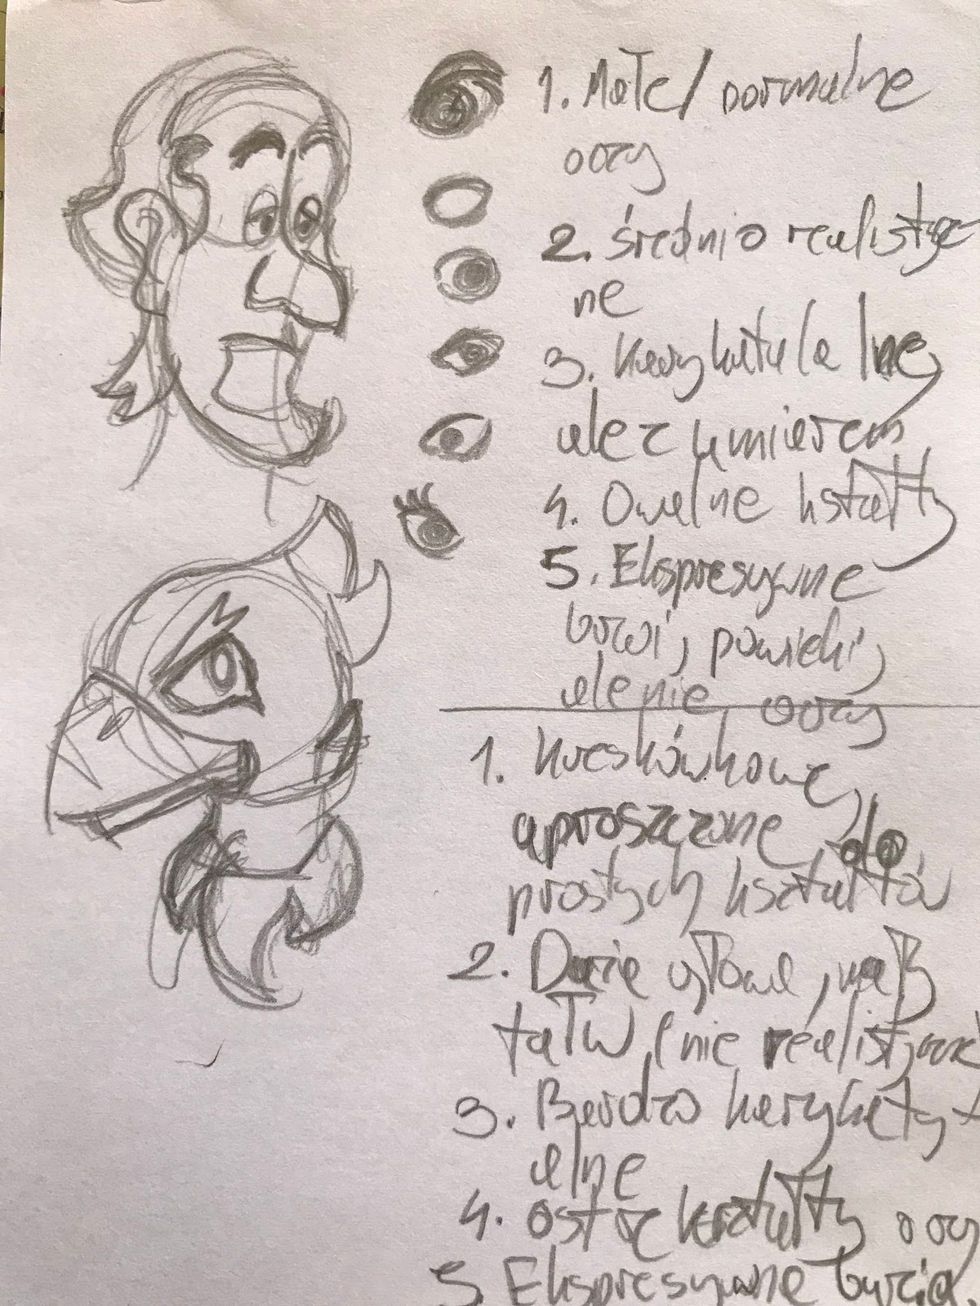 1. Małe / normalne
oczy
2. średnio realistycz
ne
3. karykaturalne,
ale z umiarem
4. Owalne kształty
5. Ekspresywne
brwi, powieki,
ale nie oczy
1. Kreskówkowe,
uproszczone do
prostych kształtów
2. Duże głowy, mały
tałw, (nie realistyczne
3. Bardzo karykaty
alne
4. ostre kształty oczy
5 Ekspresywne